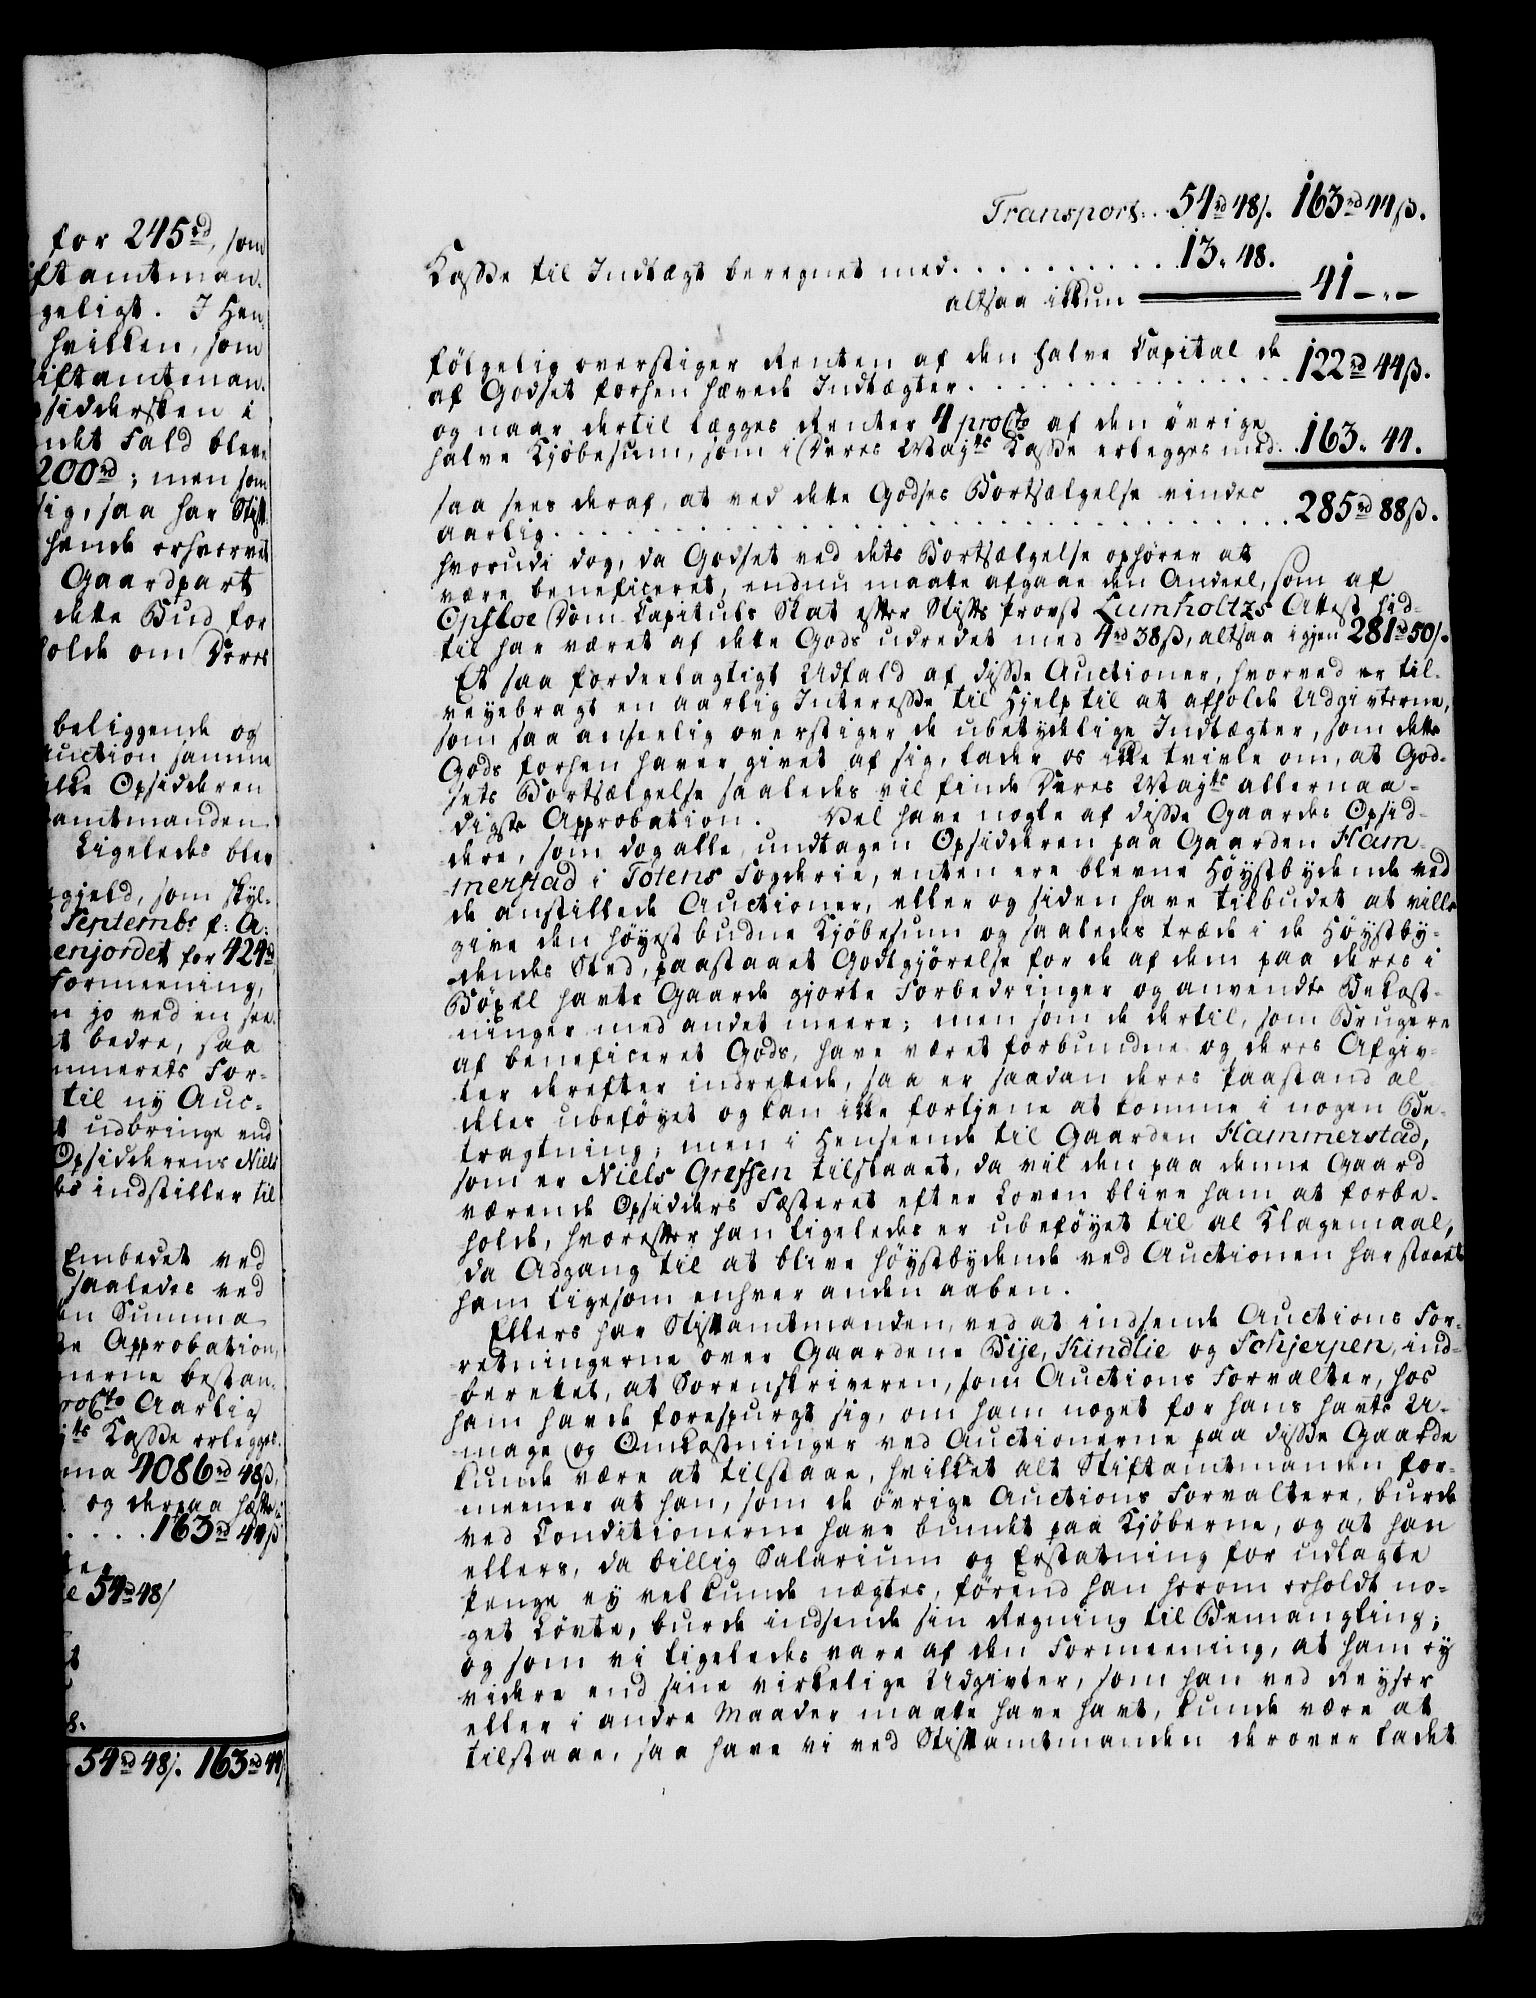 for 245rd, som
iftamtman-
geligt. I Hen-
hvilken, som
iftamtman-
psiddersken i
ndet Fald bleve
200rd; men som
sig, saa har Stift
hende erhvervet
Gaardpart
dette Bud for
holde om Deres
beliggende og
Auction samme
ikke Opsidderen
amtmanden.
Ligeledes blev
gield, som skyl-
Septembr f: A:
enjordet for 424rd
Formeening,
n jo ved en see-
t bedre, saa
mmerets For-
til ny Auc-
t udbringe end
Opsidderens Niels
es indstiller til
Embedet ved
saaledes ved
en Summa
te Approbation,
nerne bestan-
proCto Aarlig
jts Kasse erlegges.
ma 4086rd 48ß,
og derpaa hæfte-
. . . . 163rd 44ß
te,
e 54rd 48ß
t
s.
54rd 48ß. 163rd 44ß
Transport: . . 54rd 48ß. 163rd 44ß.
Kasse til Indtægt beregnet med . . . . . . . . . . 13. 48.
altsaa ikkun 41 - „ -
fölgelig overstiger Renten af den halve Capital de
af Godset forhen hævede Indtægter . . . . . . . . . . . . . . 122rd 44ß.
og naar dertil lægges Renter 4 proCto af den övrige
halve Kjöbesum, som i Deres Mayts Kasse erlegges med . . 163. 44.
saa sees deraf, at ved dette Godses Bortsælgelse vindes
aarlig . . . . . . . . . . . . . . . . . . . . . . . . . . 285rd 88ß.
hvorudi dog, da Godset ved dets Bortsælgelse ophörer at
være beneficeret, endnu maatte afgaae den Andeel, som af
Opsloe Dom Capituls Skat efter Stifts Provst Lumholtzs Attest hid-
til har været af dette Gods udredet med 4rd 38ß, altsaa igjen 281rd 50ß.
Et saa fordeelagtigt Udfald af disse Auctioner, hvorved er til-
veyebragt en aarlig Interesse til Hjelp til at afholde Udgivterne,
som saa anseelig overstiger de ubetydelige Indtægter, som dette
Gods forhen haver givet af sig, lader os ikke tvivle om, at God-
sets Bortsælgelse saaledes vil finde Deres Mayts allernaa-
digste Approbation. Vel have nogle af disse Gaardes Opsid-
dere, som dog alle, undtagen Opsidderen paa Gaarden Ham-
merstad i Totens Fogderie, enten ere blevne Höystbydende ved
de anstillede Auctioner, eller og siden have tilbudet at ville
give den höyest budne Kjöbesum og saaledes træde i de Höystby-
dendes Sted, paastaaet Godtgjörelse for de af dem paa deres i
Böxel havte Gaarde gjorte Forbedringer og anvendte Bekost-
ninger med andet meere; men som de dertil, som Brugere
af beneficeret Gods, have været forbundne og deres Afgiv-
ter derefter indrettede, saa er saadan deres Paastand al-
deles ubeföyet og kan ikke fortjene at komme i nogen Be-
tragtning; men i Henseende til Gaarden Hammerstad,
som er Niels Greffsen tilstaaet, da vil den paa denne Gaard
værende Opsidders Fæsteret efter Loven blive ham at forbe-
holde, hvorefter han ligeledes er ubeföyet til al Klagemaal,
da Adgang til at blive höystbydende ved Auctionen har staaet
ham ligesom enhver anden aaben.
Ellers har Stiftamtmanden, ved at indsende Auctions For-
retningerne over Gaardene Bije, Kindlie og Schjerpen, ind-
berettet, at Sorenskriveren, som Auctions Forvalter, hos
ham havde forespurgt sig, om ham noget for hans havte U-
mage og Omkostninger ved Auctionerne paa disse Gaarde
kunde være at tilstaae, hvilket alt Stiftamtmanden for-
meener at han, som de övrige Auctions Forvaltere, burde
ved Conditionerne have bundet paa Kjöberne, og at han
ellers, da billig Salarium og Erstatning for udlagte
Penge ey vel kunde nægtes, förend han herom erholdt no-
get Lövte, burde indsende sin Regning til Bemangling;
og som vi ligeledes vare af den Formeening, at ham ey
videre end sine virkelige Udgivter, som han ved Reyser
eller i andre Maader maatte have havt, kunde være at
tilstaae, saa have vi ved Stiftamtmanden derover ladet